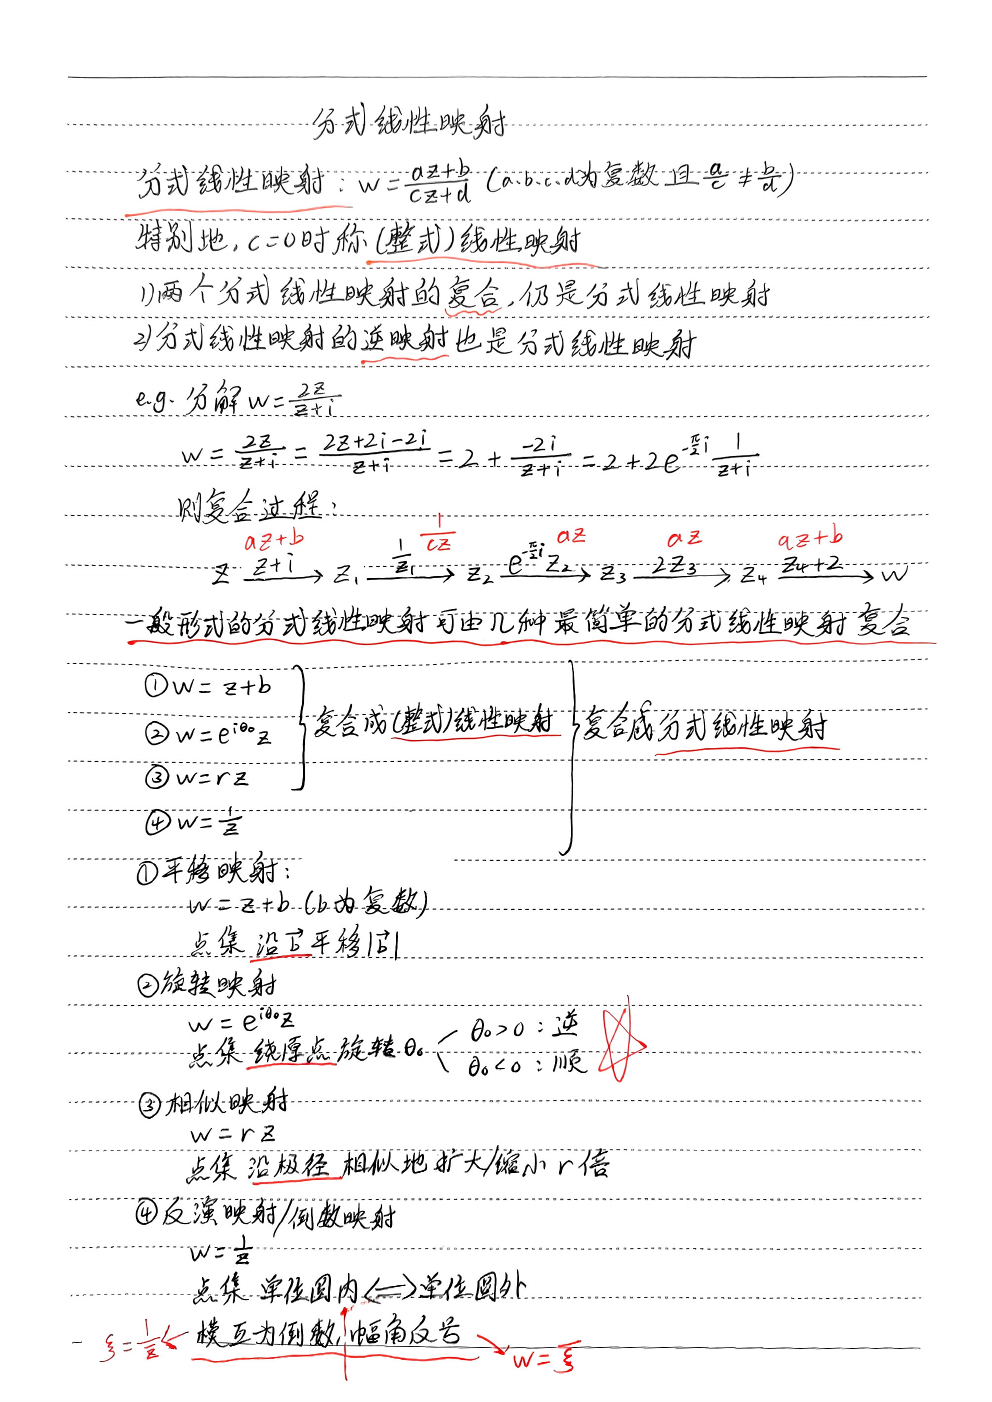 分式线性映射
分式线性映射: w=\frac{az+b}{cz+d} (a.b.c.d为复数且\frac{a}{c}≠\frac{b}{d})
特别地,c=0时称(整式)线性映射
1)两个分式线性映射的复合,仍是分式线性映射
2)分式线性映射的逆映射也是分式线性映射
e.g. 分解w=\frac{2z}{z+i}
w=\frac{2z}{z+i}=\frac{2z+2i-2i}{z+i}=2+\frac{-2i}{z+i}=2+2e^{-\frac{π}{2}i}\frac{1}{z+i}
则复合过程:
az+b \frac{1}{cz} az az az+b
z \xrightarrow{z+i} z₁ \xrightarrow{\frac{1}{z₁}} z₂ \xrightarrow{e^{-\frac{π}{2}i}z₂} z₃ \xrightarrow{2z₃} z₄ \xrightarrow{z₄+2} w
一般形式的分式线性映射可由几种最简单的分式线性映射复合
①w=z+b
②w=e^{iθ₀}z 复合成(整式)线性映射 复合成分式线性映射
③w=rz
④w=\frac{1}{z}
①平移映射:
w=z+b (b为复数)
点集沿\vec{b}平移|\vec{b}|
②旋转映射
w=e^{iθ₀}z
θ₀>0:逆
点集绕原点旋转θ₀
θ₀<0:顺
③相似映射
w=rz
点集沿极径相似地扩大/缩小r倍
④反演映射/倒数映射
w=\frac{1}{z}
点集单位圆内<=>单位圆外
ξ=\frac{1}{\bar{z}} ← 模互为倒数,幅角反号 → w=\bar{ξ}